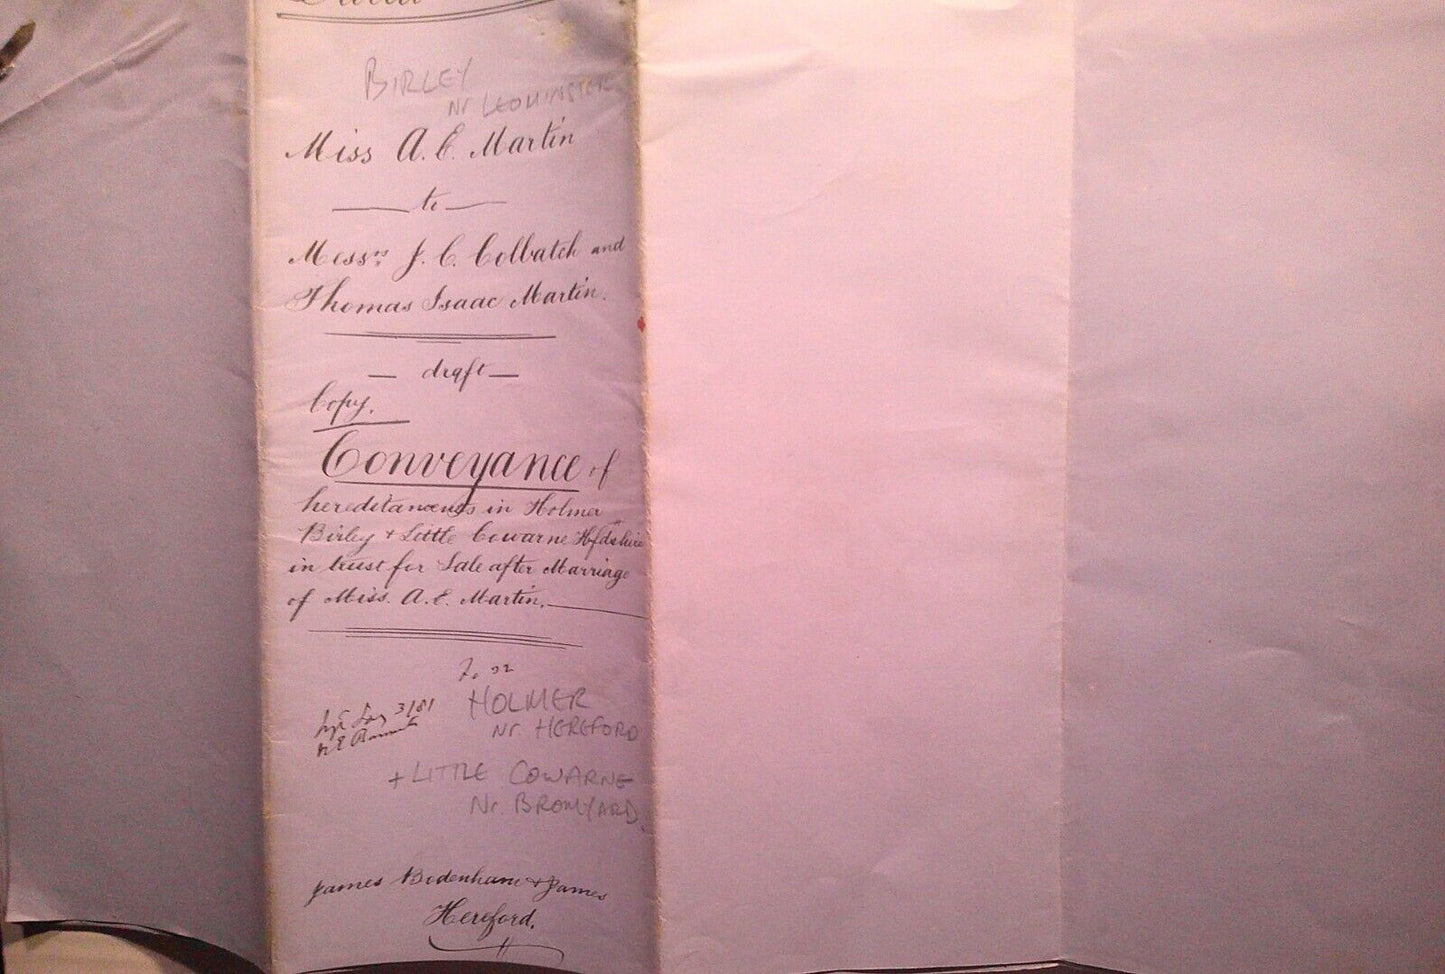 BIRLEY
Nr LEOMINSTER
Miss A. E. Martin
to
Messrs J. C. Colbatch and
Thomas Isaac Martin.
draft
Copy.
Conveyance of
hereditaments in Holmer
Birley + Little Cowarne Hfdshire
in trust for Sale after Marriage
of Miss. A. E. Martin.
HOLMER
Nr. HEREFORD
+ LITTLE COWARNE
Nr. BROMYARD.
James Bodenham & James
Hereford.